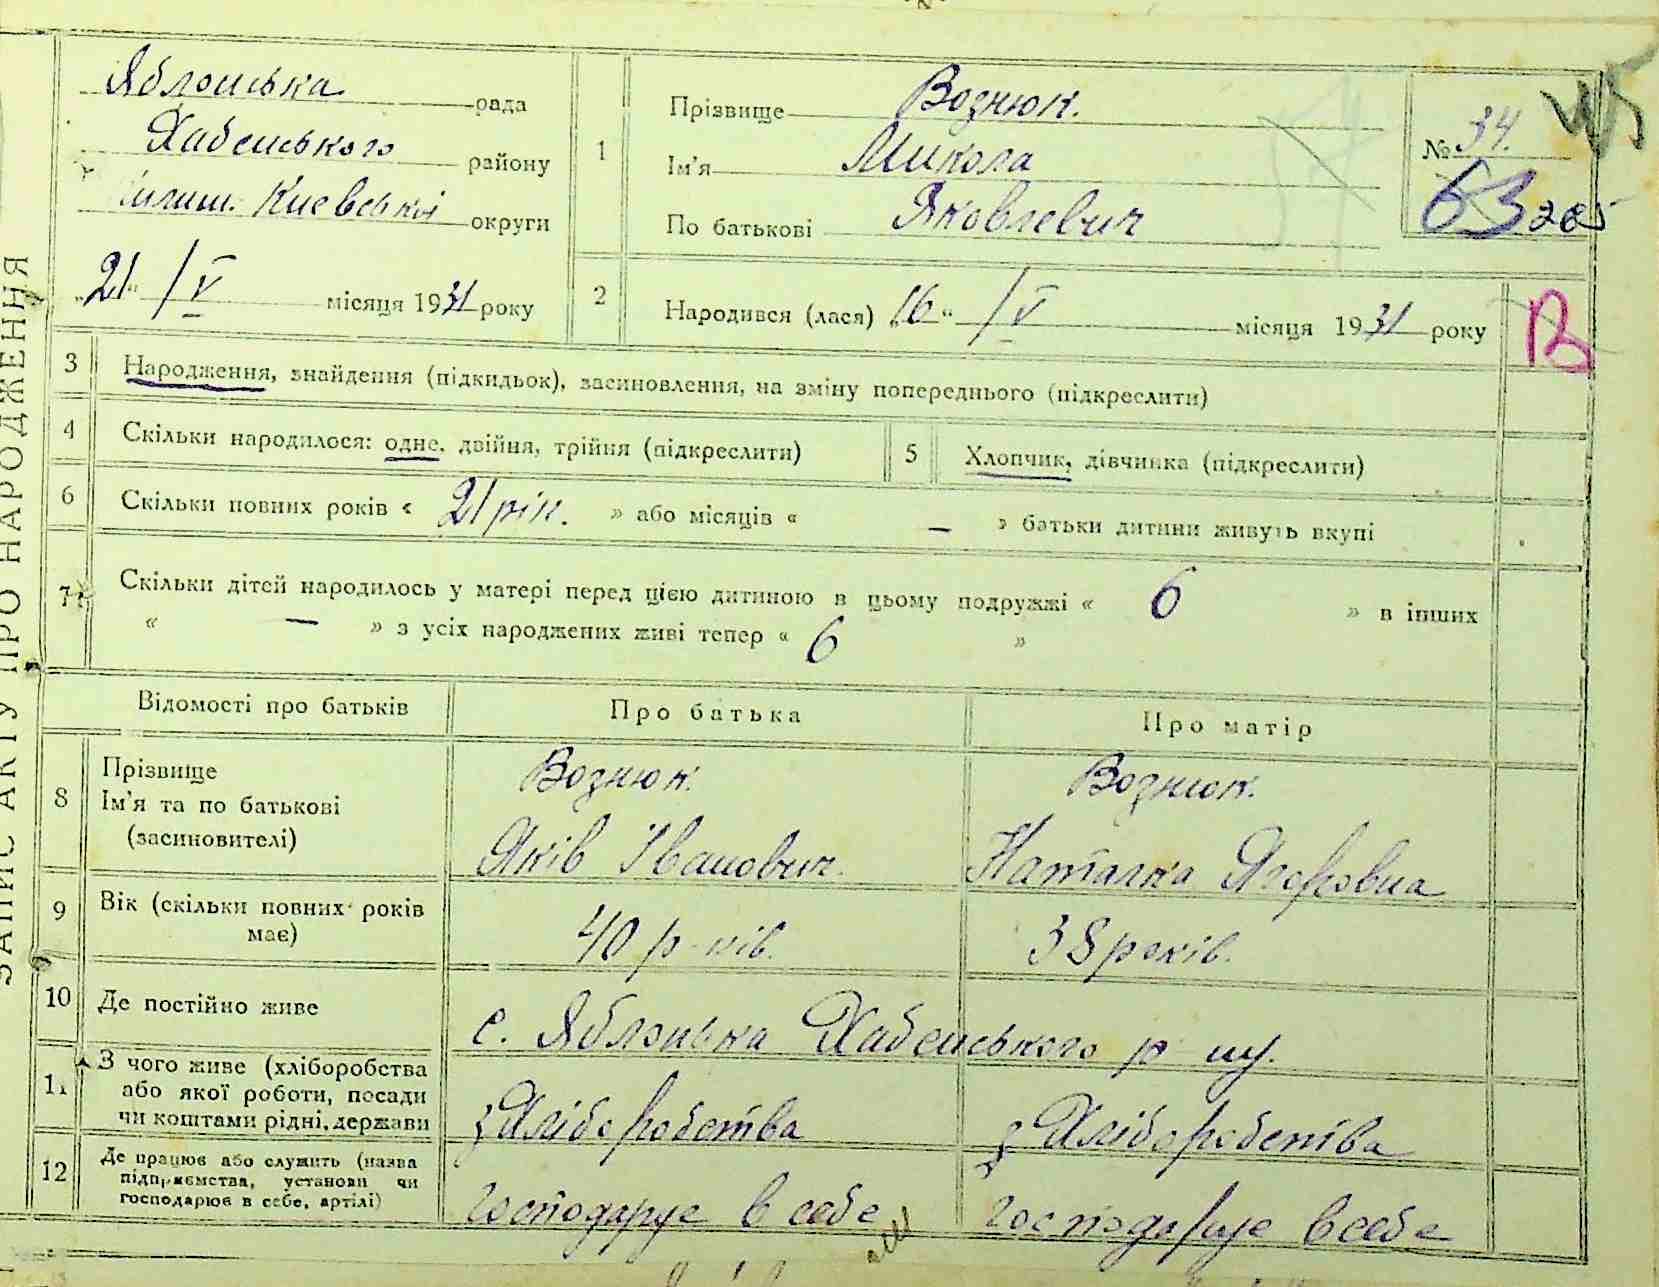 ЗАПИС АКТУ ПРО НАРОДЖЕННЯ
Яблонська рада
Хабенського району
Київської округи
„21“ / V місяця 1931 року
1
Прізвище Вознюк.
Ім'я Микола
По батькові Яковлевич
№ 34.
63 265
45
2 Народився (лася) „16“ / V місяця 1931 року
В
3 Народження, знайдення (підкидьок), засиновлення, на зміну попереднього (підкреслити)
4 Скільки народилося: одне, двійня, трійня (підкреслити) 5 Хлопчик, дівчинка (підкреслити)
6 Скільки повних років « 21 рік. » або місяців « — » батьки дитини живуть вкупі
7 Скільки дітей народилось у матері перед цією дитиною в цьому подружжі « 6 » в інших
« — » з усіх народжених живі тепер « 6 »
Відомості про батьків Про батька Про матір
8 Прізвище Вознюк. Вознюк.
Ім'я та по батькові
(засиновителі) Яків Іванович. Наталка Ягоровна
9 Вік (скільки повних років
має) 40 р-ків. 38 років.
10 Де постійно живе с. Яблонька Хабенського р-ну.
11 З чого живе (хліборобства
або якої роботи, посади
чи коштами рідні, держави з Хліборобства з Хліборобства
12 Де працює або служить (назва
підприємства, установи чи
господарює в себе, артілі) Господарує в себе Господарує в себе